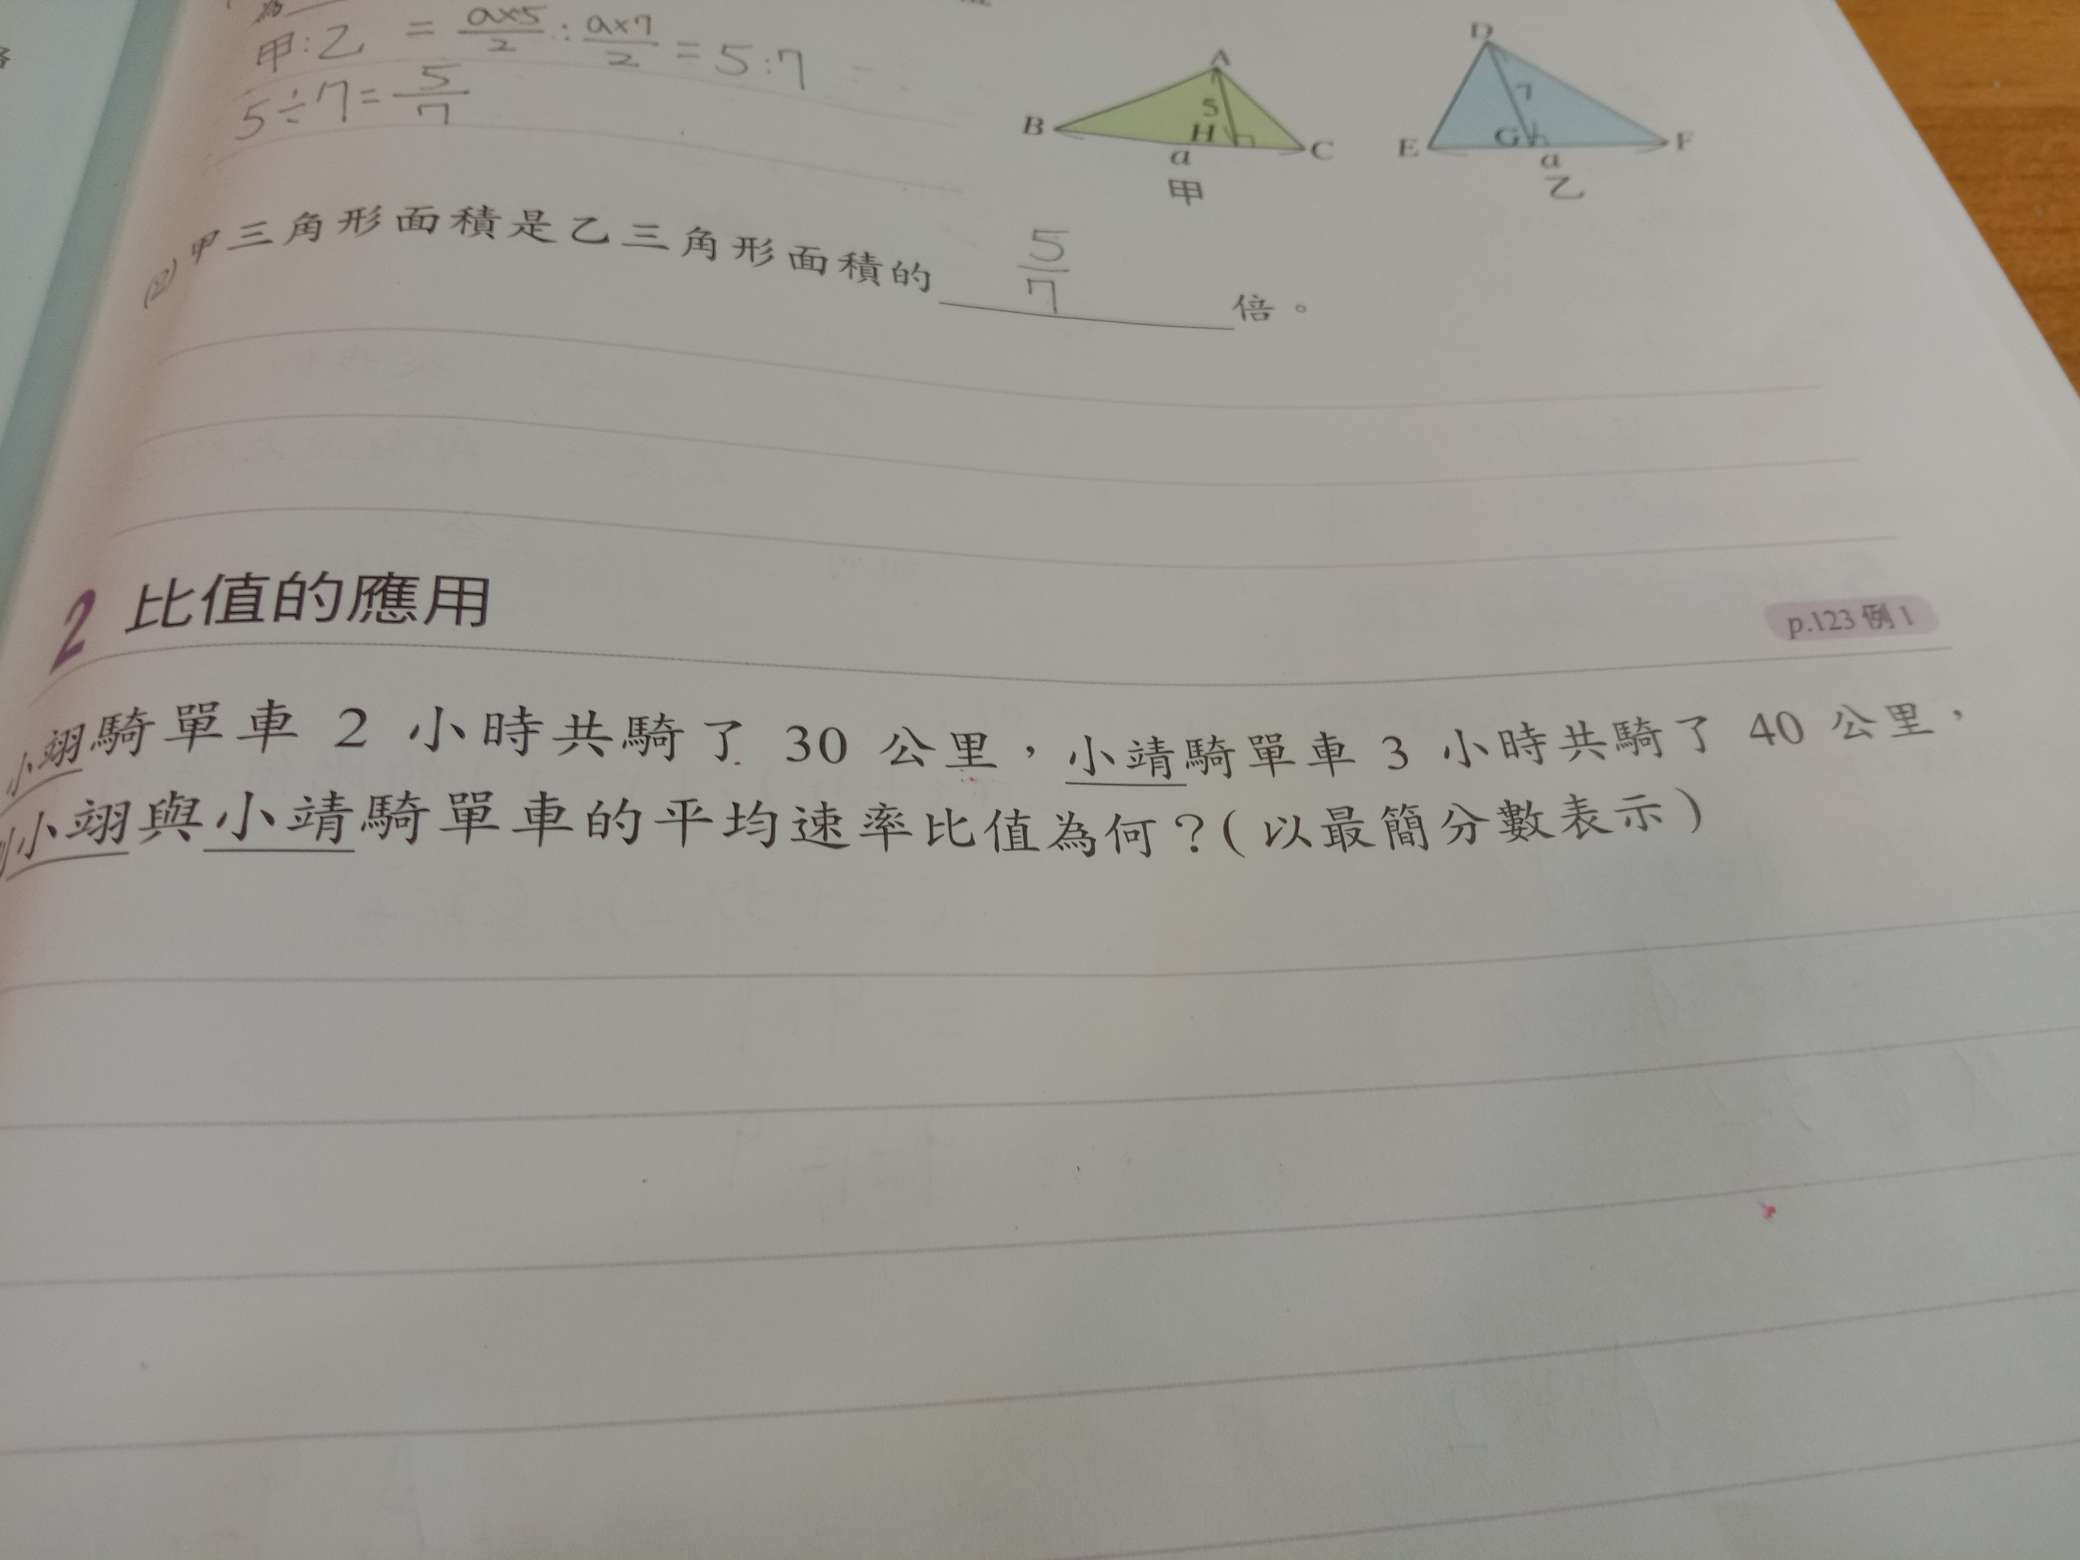 甲:乙 = a×5/2 : a×7/2 = 5:7
5÷7= 5/7
A
5
B
H
C
a
甲
D
7
E
G
F
a
乙
(2) 甲三角形面積是乙三角形面積的 5/7 倍。
2 比值的應用
p.123例1
小翊騎單車 2 小時共騎了 30 公里，小靖騎單車 3 小時共騎了 40 公里，
小翊與小靖騎單車的平均速率比值為何？(以最簡分數表示)